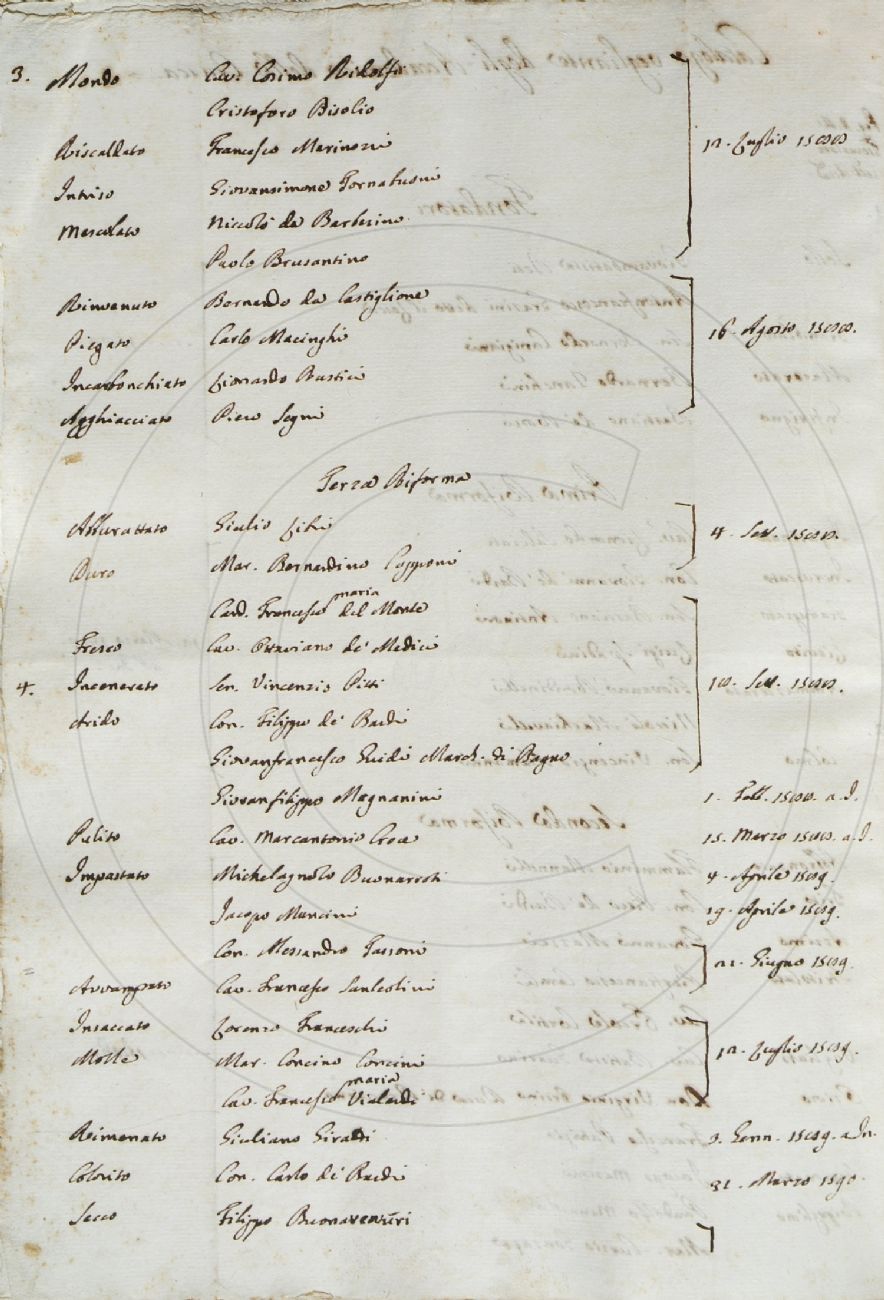 3. Mondo Cav. Cosimo Ridolfi
Cristoforo Bisolio
12. Luglio 1588
Riscaldato Francesco Marinozzi
Intriso Giovansimone Tornabuoni
Mescolato Niccolò da Barberino
Paolo Brusantino
Rinvenuto Bernardo da Castiglione
Piegato Carlo Macinghi
16. Agosto 1588.
Incarbonchiato Lionardo Rustici
Agghiacciato Piero Segni
Terza Riforma
Giulio Libri
4. Sett. 1588.
Duro Mar. Bernardino Capponi
Card. Francesco maria del Monte
Fresco Cav. Ottaviano de' Medici
4. Incenerato Sen. Vincenzio Pitti
10. Sett. 1588.
Arido Con. Filippo de' Bardi
Giovanfrancesco Guidi March. di Bagno
Giovanfilippo Magnanini 1. Febb. 1588. a. I.
Pulito Cav. Marcantonio 15. Marzo 1588. a. I.
Impastato Michelagnolo Buonarroti 4. Aprile 1589.
Jacopo Mancini 19. Aprile 1589.
Con. Alessandro Tassoni
Giugno 1589.
Avvampato Cav. Francesco Sanleolini
Insaccato Lorenzo Franceschi
12. Luglio 1589.
Molle Mar. Concino Concini
Cav. Francesco maria Vialardi
Rimenato Giuliano Giraldi 3. Genn. 1589. a In.
Colorito Con. Carlo de' Bardi 31. Marzo 1590.
Secco Filippo Buonaventuri